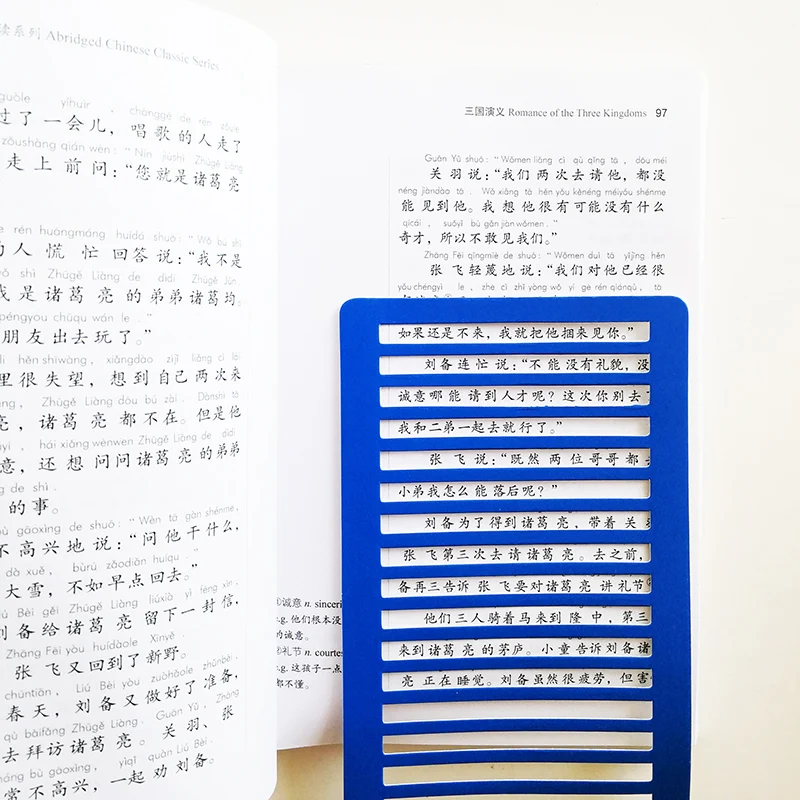 读系列 Abridged Chinese Classic Series
guòle yíhuìr , chànggē de rén zǒule
过了一会儿，唱歌的人走了
zǒushàng qián wèn: “Nín jiùshì Zhūgě Liàng
走上前问：“您就是诸葛亮
rén huāngmáng huídá shuō: “Wǒ bú shì
人慌忙回答说：“我不是
shì Zhūgě Liàng de dìdi Zhūgě Jūn
我是诸葛亮的弟弟诸葛均。
péngyou chūqu wán le .”
朋友出去玩了。”
hěn shīwàng, xiǎngdào zìjǐ liǎng cì lái
里很失望，想到自己两次来
Zhūgě Liàng dōu bú zài. Dànshì tā
亮，诸葛亮都不在。但是他
hái xiǎng wènwen Zhūgě Liàng de dìdi
意，还想问问诸葛亮的弟弟
de shì.
的事。
gāoxìng de shuō: “Wèn tā gàn shénme,
不高兴地说：“问他干什么，
dà xuě, bùrú zǎodiǎn huíqu.”
大雪，不如早点回去。”
Liú Bèi gěi Zhūgě Liàng liúxià yì fēng xìn,
刘备给诸葛亮留下一封信，
Zhāng Fēi yòu huídàole Xīnyě.
张飞又回到了新野。
chūntiān, Liú Bèi yòu zuòhǎole zhǔnbèi,
春天，刘备又做好了准备，
qù bàifǎng Zhūgě Liàng. Guān Yǔ, Zhāng
去拜访诸葛亮。关羽、张
cháng bù gāoxìng, yìqǐ quàn Liú Bèi.
常不高兴，一起劝刘备。
三国演义 Romance of the Three Kingdoms 97
Guān Yǔ shuō: “Wǒmen liǎng cì qù qǐng tā , dōu méi
关羽说：“我们两次去请他，都没
néng jiàndào tā . Wǒ xiǎng tā hěn yǒu kěnéng méiyǒu shénme
能见到他。我想他很有可能没有什么
qícái , suǒyǐ bù gǎn jiàn wǒmen.”
奇才，所以不敢见我们。”
Zhāng Fēi qīngmiè de shuō: “Wǒmen duì tā yǐjīng hěn
张飞轻蔑地说：“我们对他已经很
yǒu chéngyì le , zhè cì zhǐ yòng wǒ yí gè rén qiánqù , tā
如果还是不来，我就把他捆来见你。”
刘备连忙说：“不能没有礼貌，没
诚意哪能请到人才呢？这次你别去了
我和二弟一起去就行了。”
张飞说：“既然两位哥哥都去
小弟我怎么能落后呢？”
刘备为了得到诸葛亮，带着关羽
张飞第三次去请诸葛亮。去之前，
备再三告诉张飞要对诸葛亮讲礼节
他们三人骑着马来到隆中，第三
来到诸葛亮的茅庐。小童告诉刘备诸
亮正在睡觉。刘备虽然很疲劳，但害
①诚意 n. sinceri
e.g. 他们根本没
的诚意。
②礼节 n. courtes
e.g. 这孩子一点
都不懂。